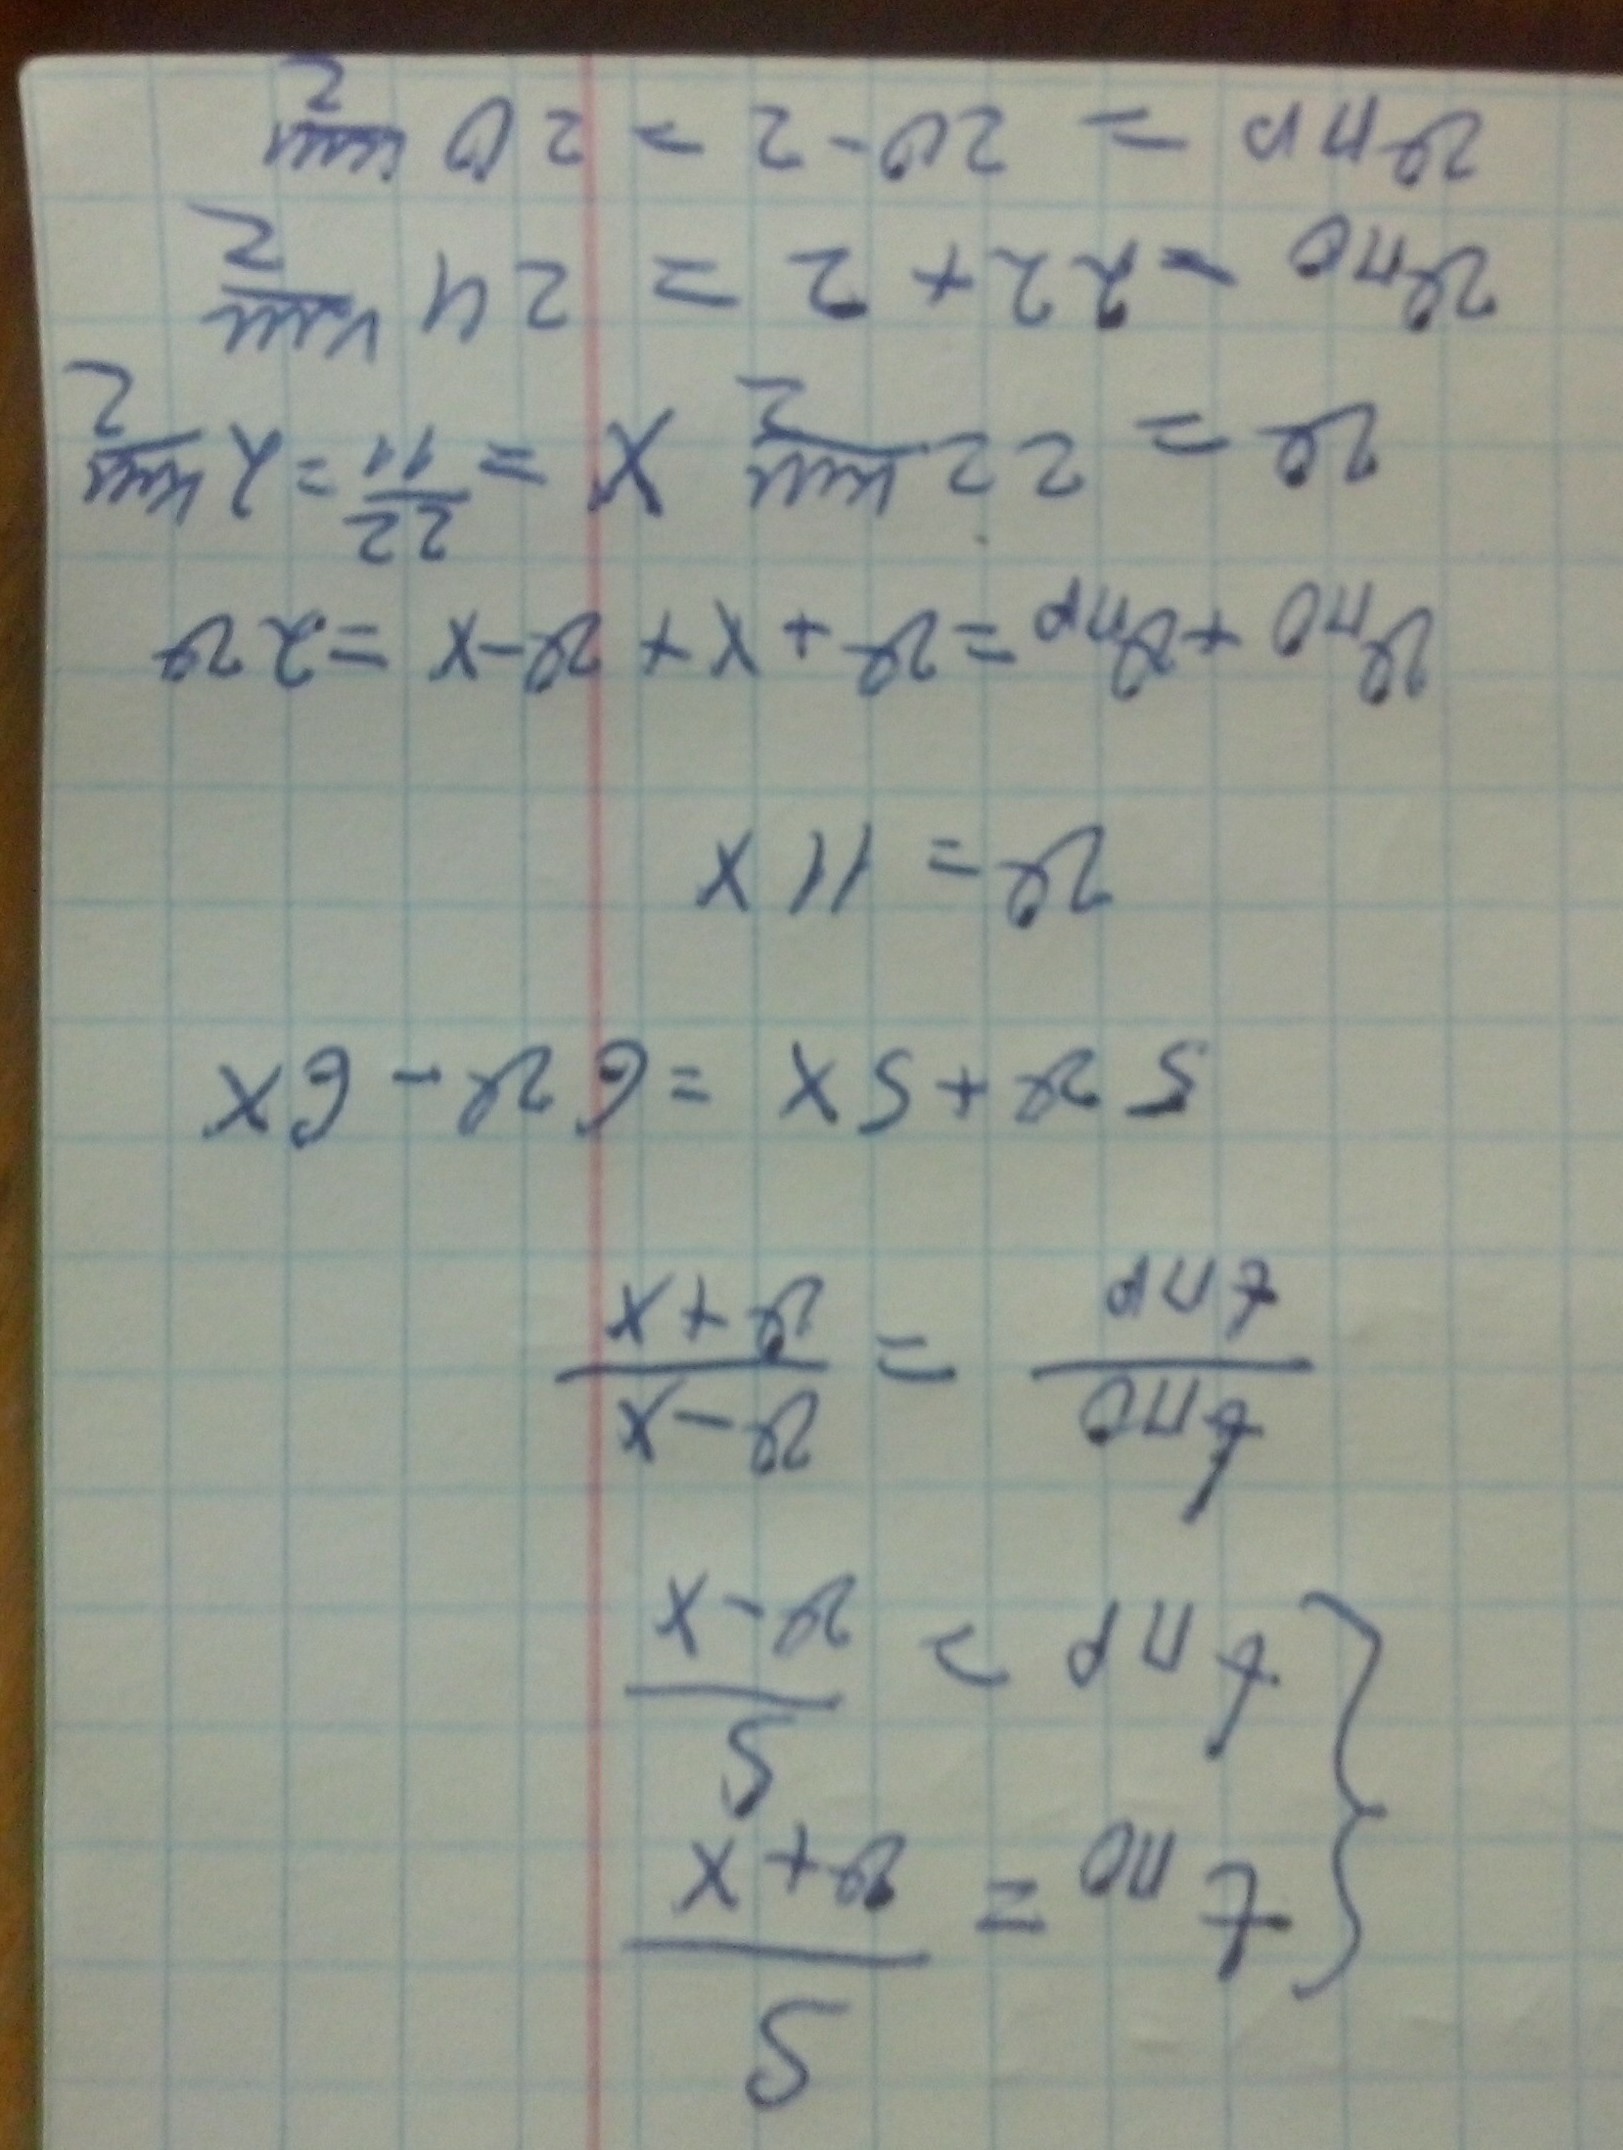 t по = S / (v+x)
t пр = S / (v-x)
t по / t пр = (v-x) / (v+x)
5v+5x=6v-6x
v=11x
v по + v пр = v+x+v-x=2v
v=22 км/ч x=22/11=2 км/ч
v по = 22+2=24 км/ч
v пр = 20-2=20 км/ч